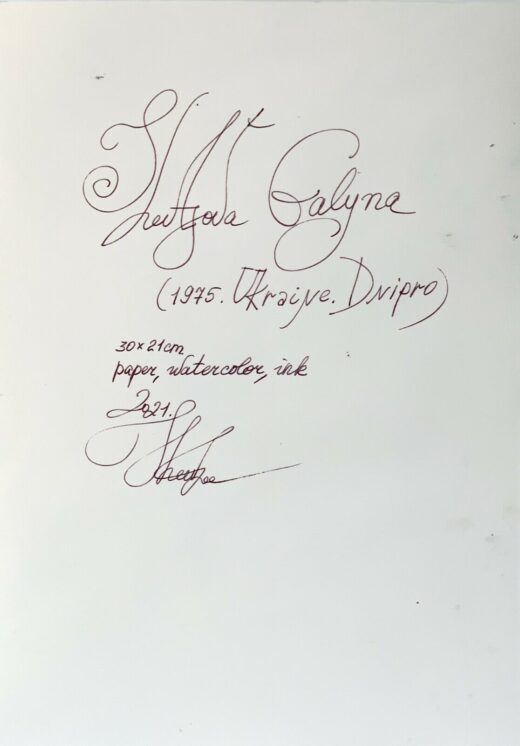 Galyna
(1975. Ukrajne. Dnipro)
30×21cm
paper, watercolor, ink
2021.